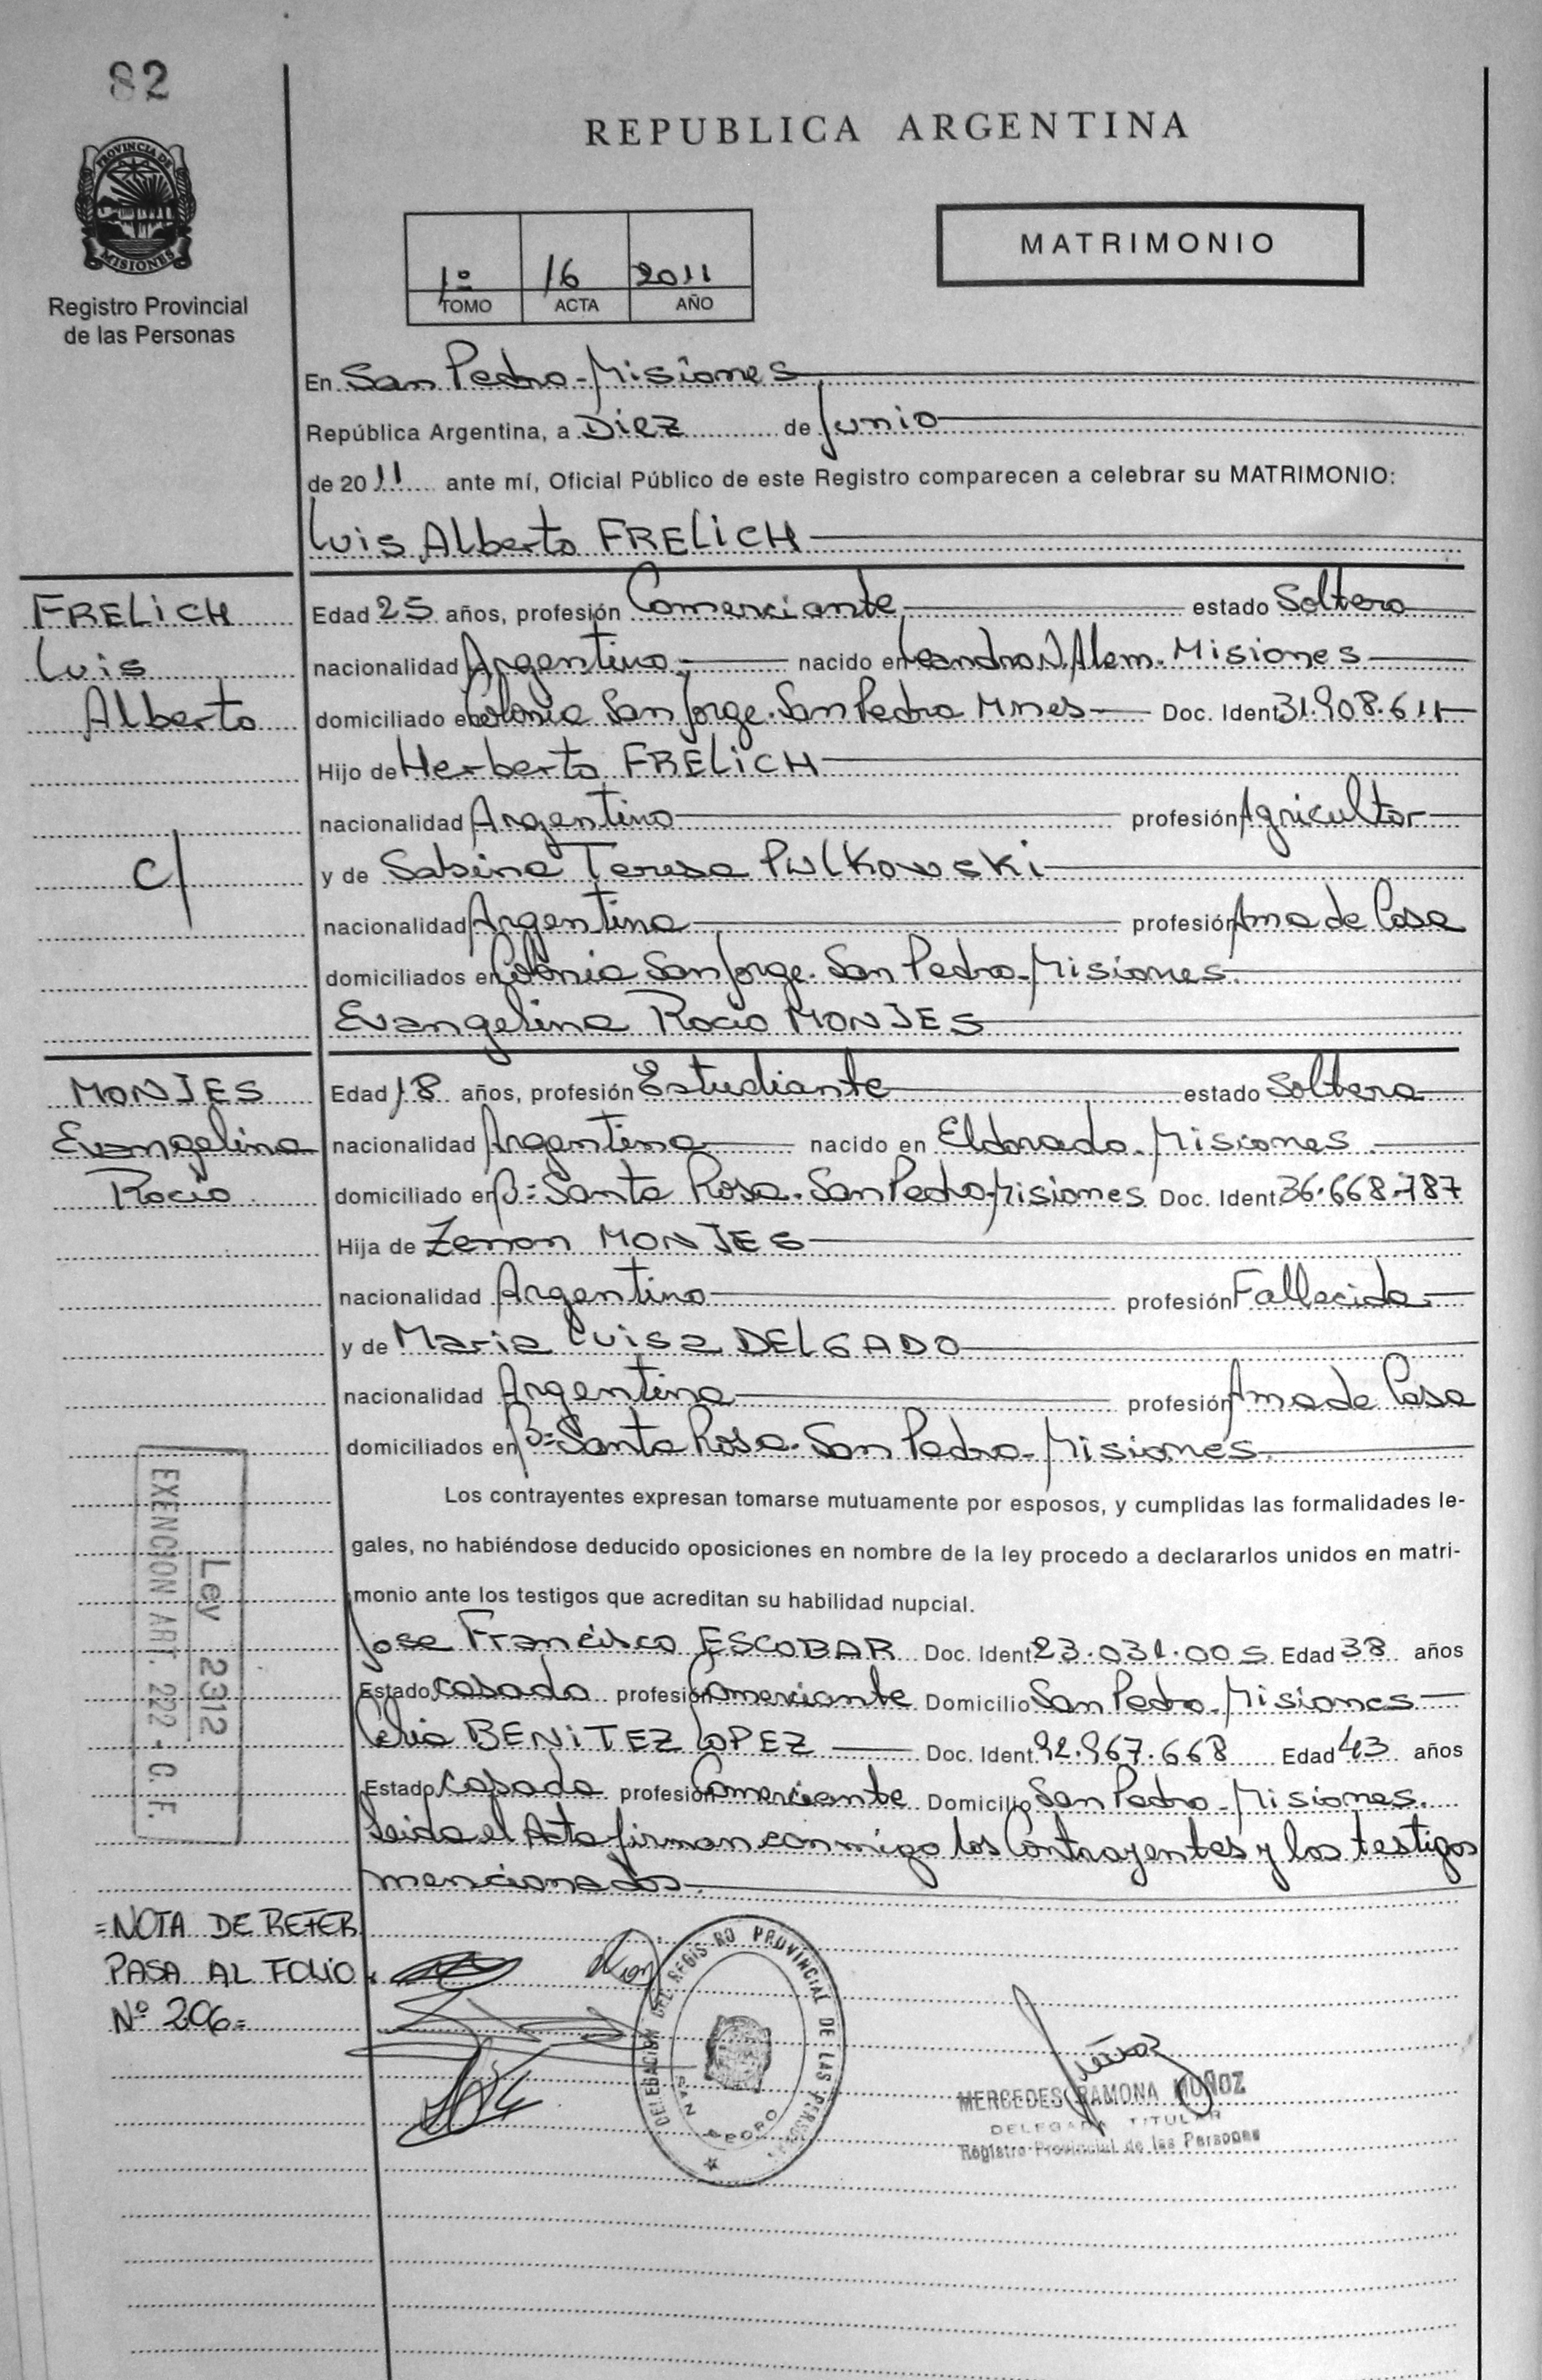 82
PROVINCIA DE
MISIONES
Registro Provincial
de las Personas
REPUBLICA ARGENTINA
MATRIMONIO
1º 16 2011
TOMO ACTA AÑO
En San Pedro-Misiones
República Argentina, a Diez de Junio
de 2011 ante mí, Oficial Público de este Registro comparecen a celebrar su MATRIMONIO:
Luis Alberto FRELICH
FRELICH
Luis
Alberto
c/
Edad 25 años, profesión Comerciante estado Soltero
nacionalidad Argentino nacido en Leandro N. Alem. Misiones
domiciliado en Colonia San Jorge. San Pedro Mnes Doc. Ident 31.908.611
Hijo de Herberto FRELICH
nacionalidad Argentino profesión Agricultor
y de Sabina Teresa PULKOWSKI
nacionalidad Argentina profesión Ama de Casa
domiciliados en Colonia San Jorge. San Pedro-Misiones.
Evangelina Rocio MONJES
MONJES
Evangelina
Rocio
Edad 18 años, profesión Estudiante estado Soltera
nacionalidad Argentina nacido en Eldorado-Misiones
domiciliado en Bº Santa Rosa. San Pedro-Misiones Doc. Ident 36.668.787
Hija de Zenon MONJES
nacionalidad Argentino profesión Fallecido
y de Maria Luisa DELGADO
nacionalidad Argentina profesión Ama de Casa
domiciliados en Bº Santa Rosa. San Pedro-Misiones.
Los contrayentes expresan tomarse mutuamente por esposos, y cumplidas las formalidades le-
gales, no habiéndose deducido oposiciones en nombre de la ley procedo a declararlos unidos en matri-
monio ante los testigos que acreditan su habilidad nupcial.
Jose Francisco ESCOBAR Doc. Ident 23.031.005 Edad 38 años
Estado casado profesión Comerciante Domicilio San Pedro-Misiones
Celia BENITEZ LOPEZ Doc. Ident. 92.967.668 Edad 43 años
Estado casada profesión Comerciante Domicilio San Pedro-Misiones.
Leida el Acta firman conmigo los Contrayentes y los testigos
mencionados.
Ley 2312
EXENCION ART. 222 - C. F.
=NOTA DE REFER.
PASA AL FOLIO
Nº 206=
DELEGACION DEL REGISTRO PROVINCIAL DE LAS PERSONAS
SAN PEDRO
MERCEDES RAMONA MUÑOZ
DELEGADA TITULAR
Registro Provincial de las Personas